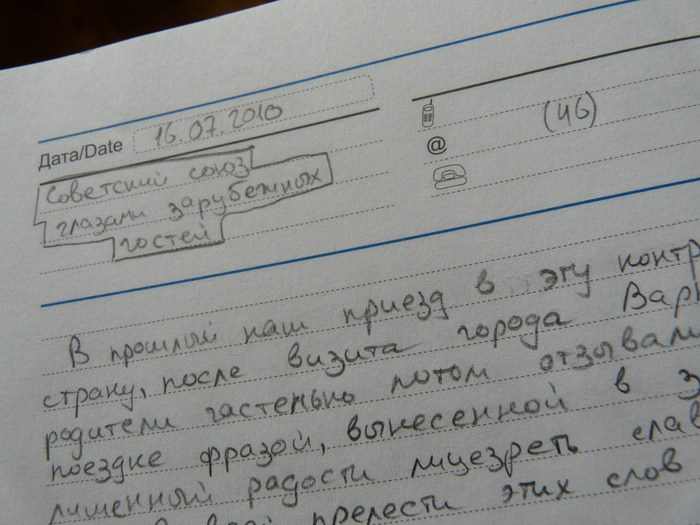 Дата/Date 16.07.2010
(46)
@
Советский союз
глазами зарубежных
гостей
В прошлый наш приезд в эту контр
страну, после визита города Вар
родители частенько потом отзывал
поездке фразой, вынесенной в з
лишенный радости лицезреть слав
прелести этих слов